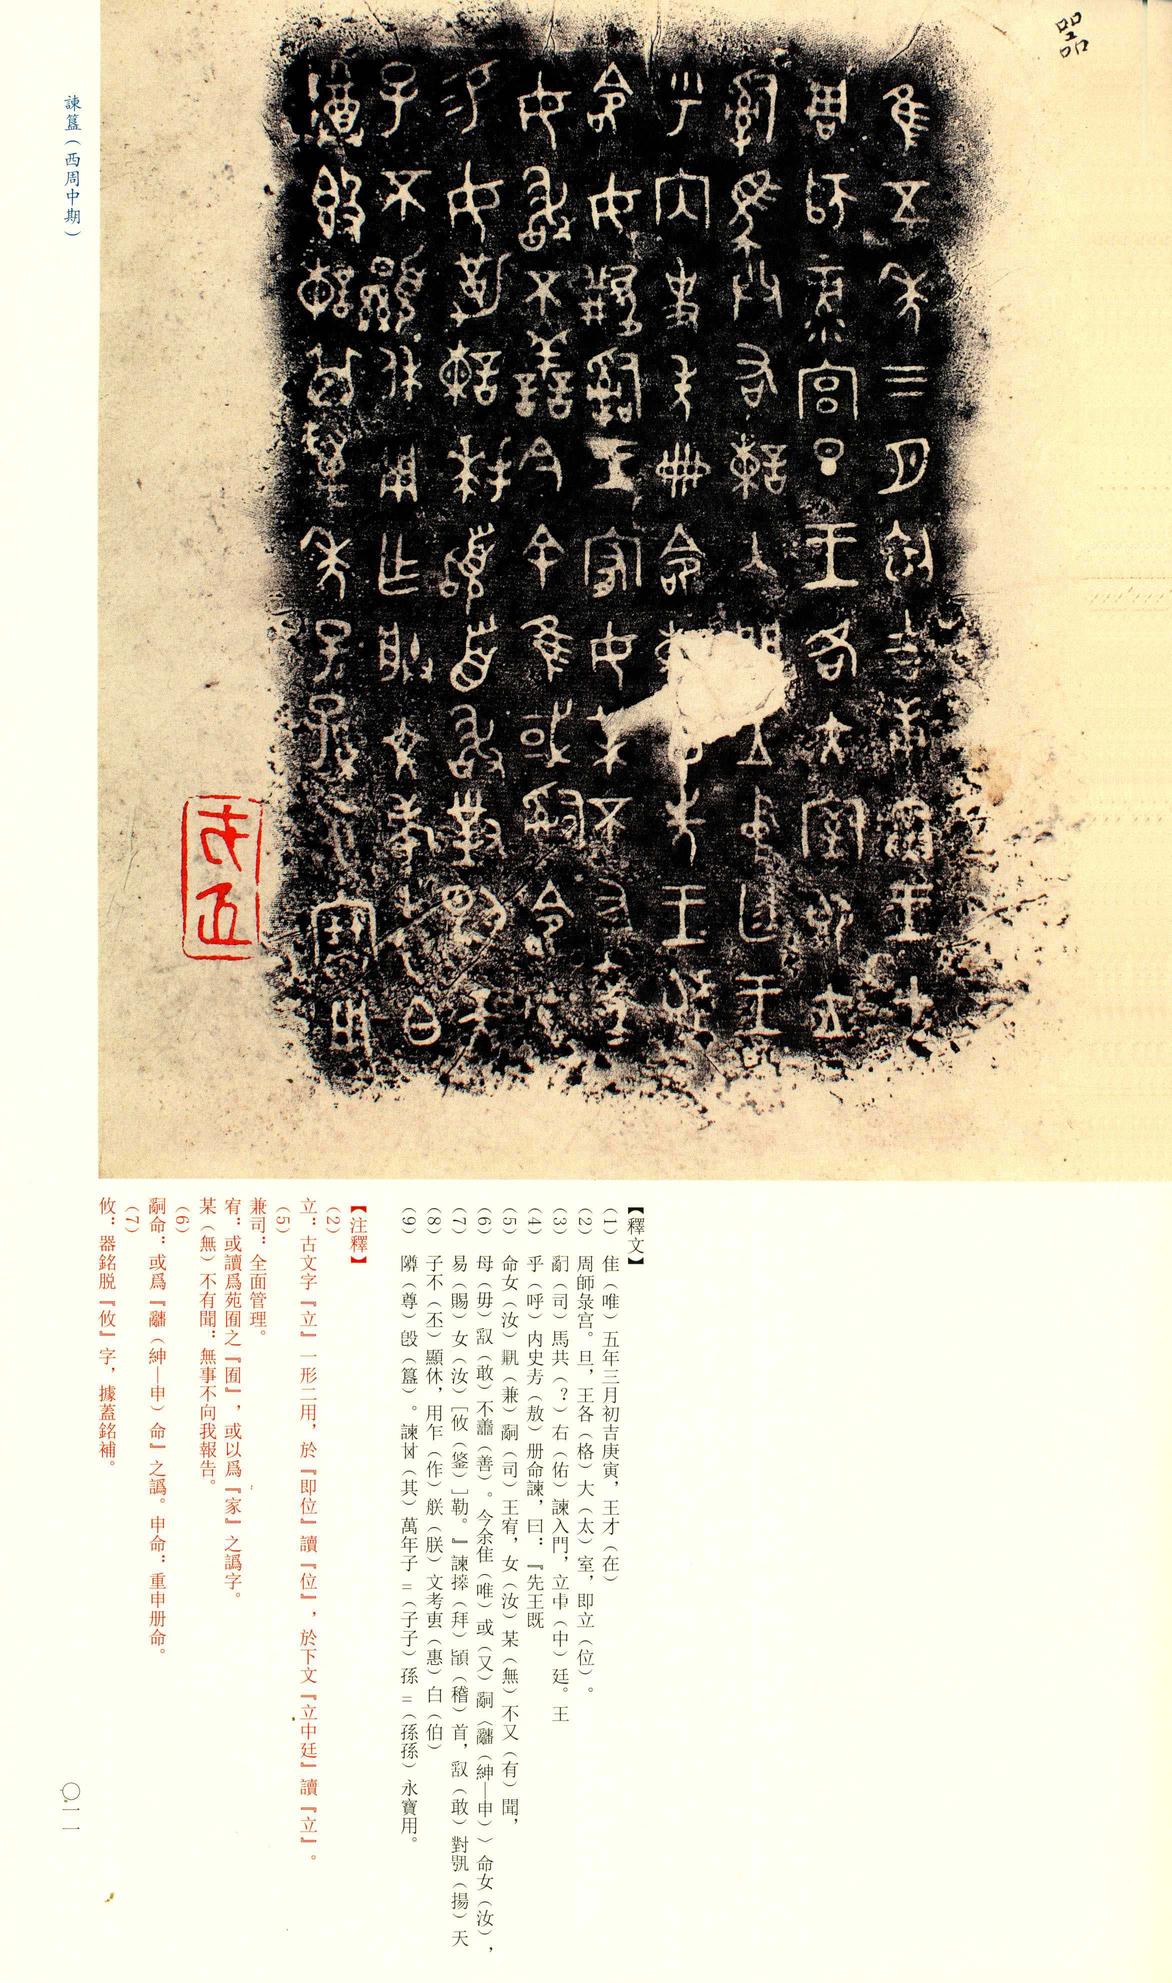 器
諫簋（西周中期）
【釋文】
(1) 隹（唯）五年三月初吉庚寅，王才（在）
(2) 周師彔宫。旦，王各（格）大（太）室，即立（位）。
(3) 𤔲（司）馬共（？）右（佑）諫入門，立中（中）廷。王
(4) 乎（呼）内史𠭯（敖）册命諫，曰：『先王既
(5) 命女（汝）𩁹（兼）𤔲（司）王宥，女（汝）某（無）不又（有）聞，
(6) 母（毋）㪤（敢）不譱（善）。今余隹（唯）或（又）𤔲〈𤕌（紳—申）〉命女（汝），
(7) 易（賜）女（汝）［攸（鋚）］勒。』諫𢷎（拜）𩒨（稽）首，㪤（敢）對𩛥（揚）天
(8) 子不（丕）顯休，用乍（作）朕（朕）文考叀（惠）白（伯）
(9) 𨻰（尊）𣪘（簋）。諫𠀠（其）萬年子＝（子子）孫＝（孫孫）永寶用。
【注釋】
(2)
立：古文字『立』一形二用，於『即位』讀『位』，於下文『立中廷』讀『立』。
(5)
兼司：全面管理。
宥：或讀爲苑囿之『囿』，或以爲『家』之譌字。
某（無）不有聞：無事不向我報告。
(6)
𤔲命：或爲『𤕌（紳—申）命』之譌。申命：重申册命。
(7)
攸：器銘脱『攸』字，據蓋銘補。
〇一一